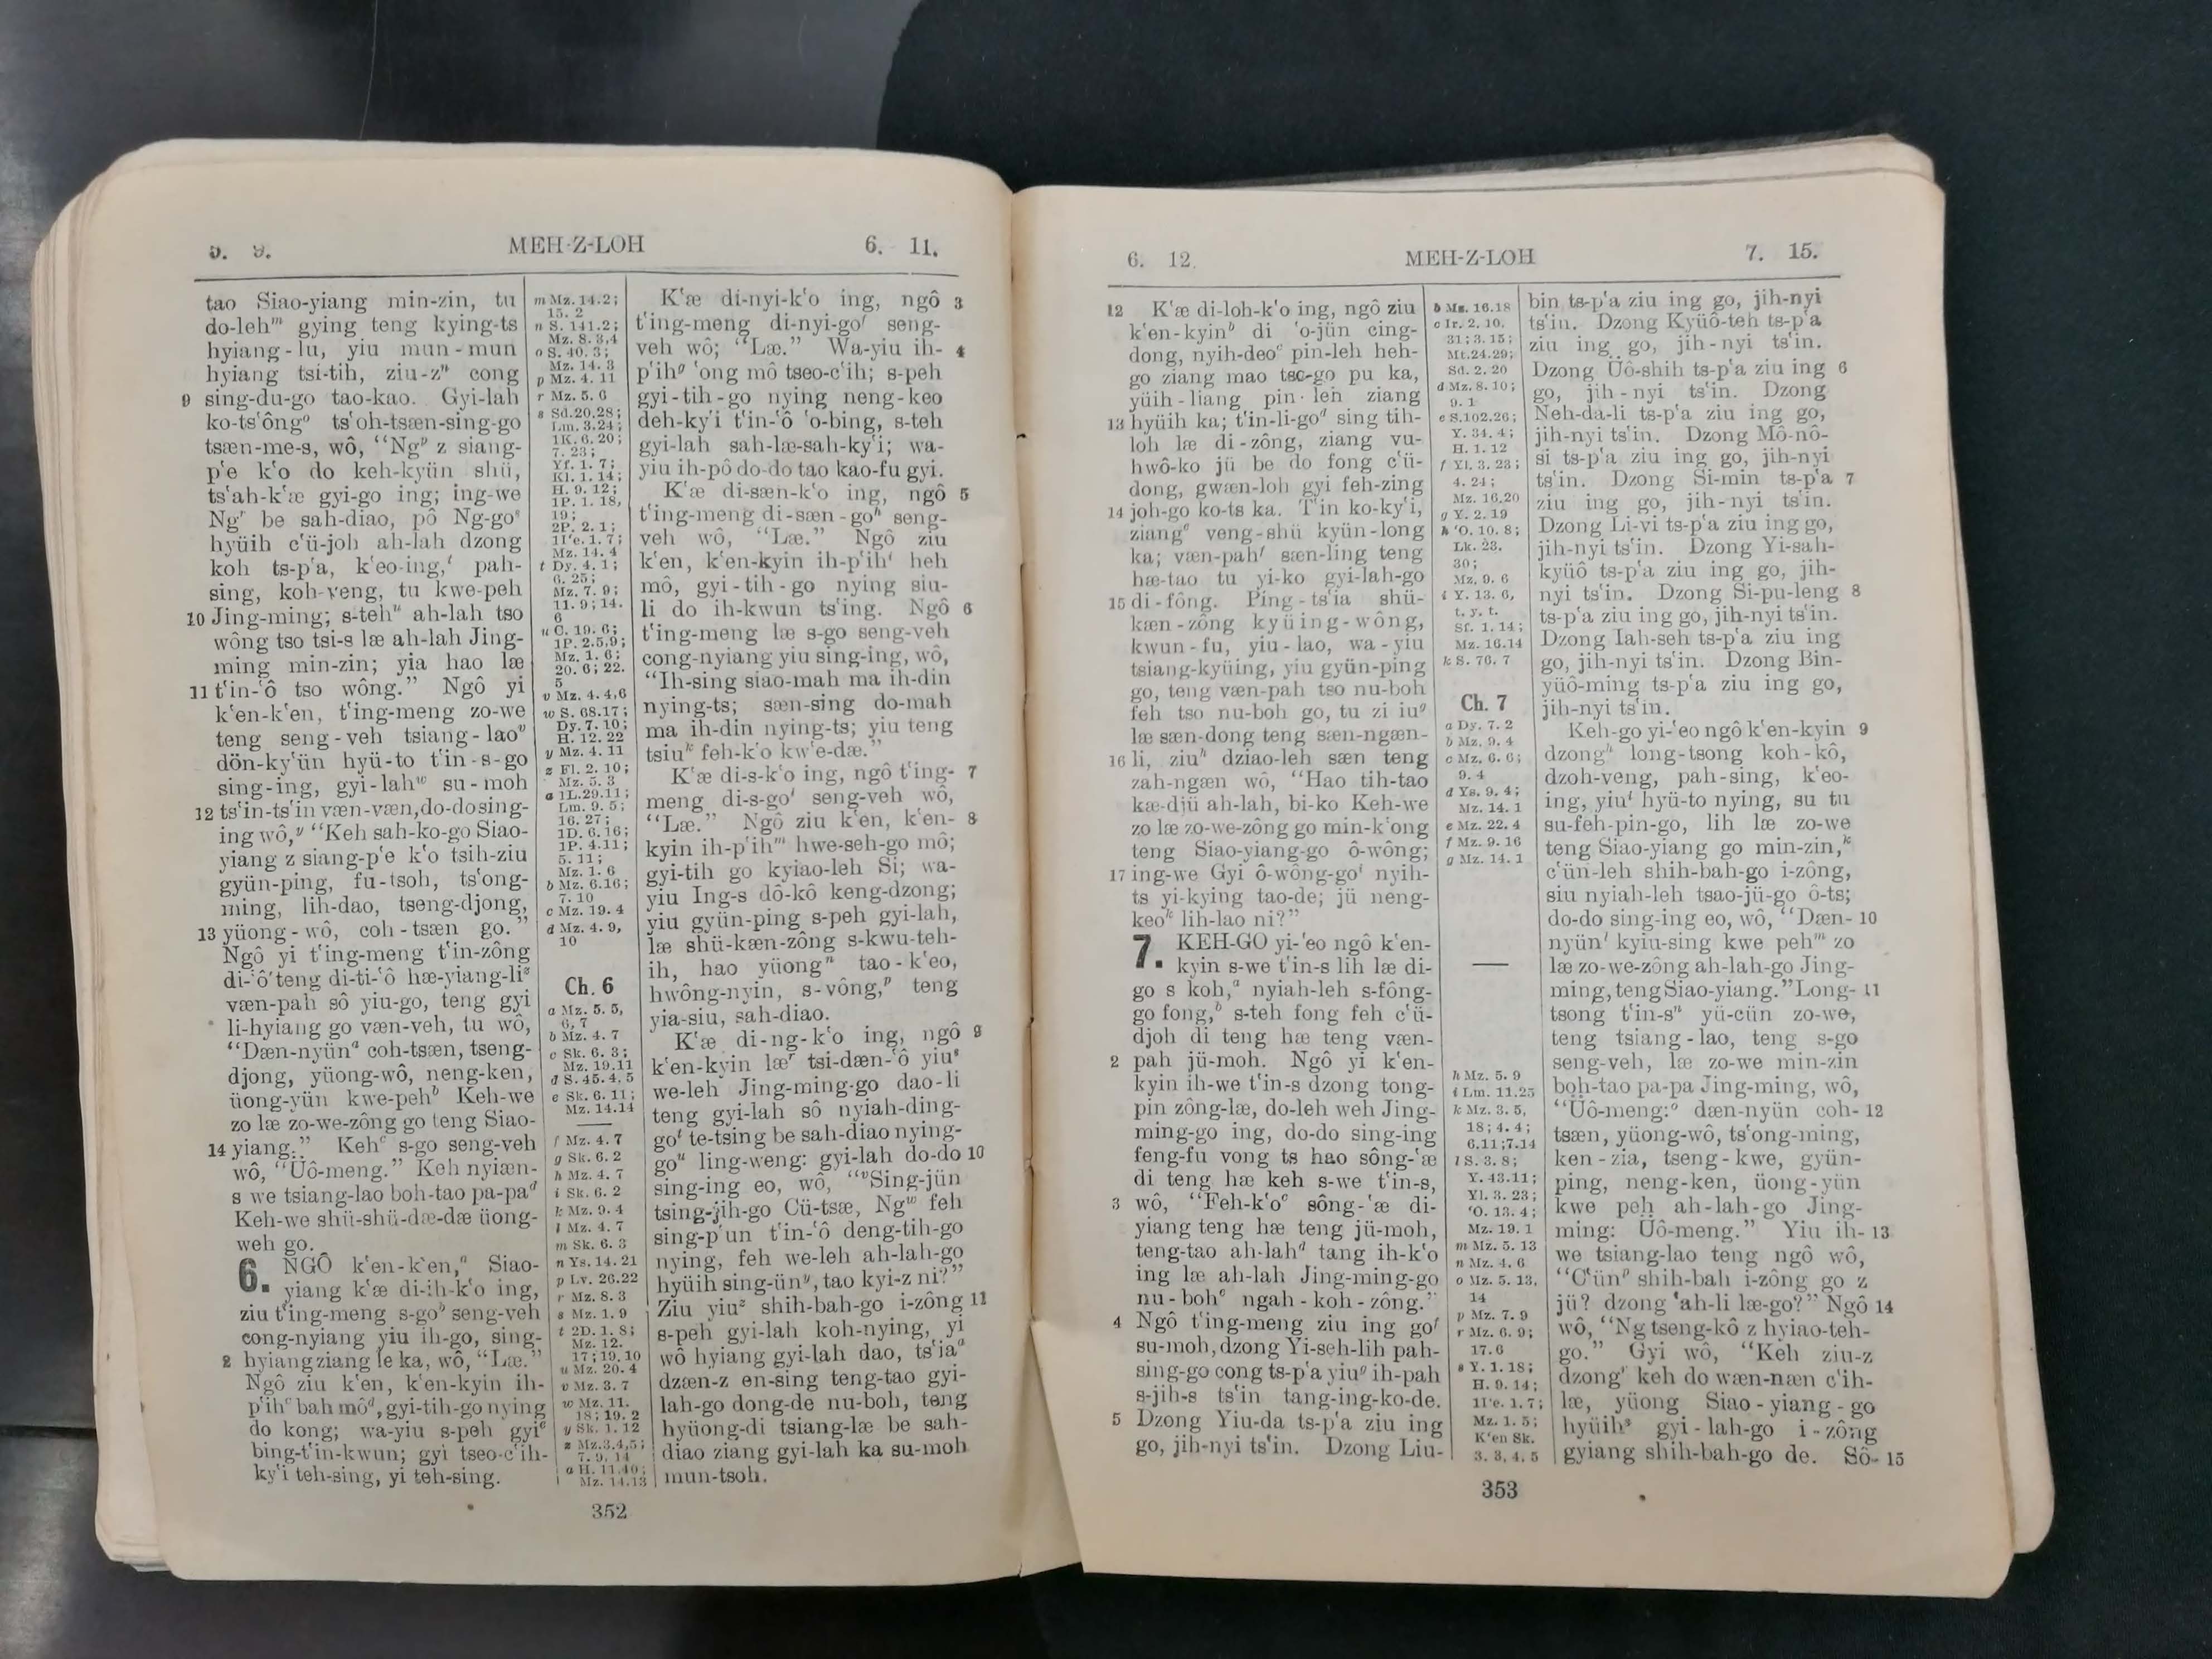 5. 9. MEH-Z-LOH 6. 11.
tao Siao-yiang min-zin, tu
do-lehᵐ gying teng kying-ts
hyiang-lu, yiu mun-mun
hyiang tsi-tih, ziu-zⁿ cong
9 sing-du-go tao-kao. Gyi-lah
ko-ts‘ôngᵒ ts‘oh-tsæn-sing-go
tsæn-me-s, wô, “Ngᵖ z siang-
p‘e k‘o do keh-kyün shü,
ts‘ah-k‘æ gyi-go ing; ing-we
Ngʳ be sah-diao, pô Ng-goˢ
hyüih c‘ü-joh ah-lah dzong
koh ts-p‘a, k‘eo-ing,ᵗ pah-
sing, koh-veng, tu kwe-peh
10 Jing-ming; s-tehᵘ ah-lah tso
wông tso tsi-s læ ah-lah Jing-
ming min-zin; yia hao læ
11 t‘in-‘ô tso wông.” Ngô yi
k‘en-k‘en, t‘ing-meng zo-we
teng seng-veh tsiang-laoᵛ
dön-ky‘ün hyü-to t‘in-s-go
sing-ing, gyi-lahʷ su-moh
12 ts‘in-ts‘in væn-væn, do-do sing-
ing wô,ʸ “Keh sah-ko-go Siao-
yiang z siang-p‘e k‘o tsih-ziu
gyün-ping, fu-tsoh, ts‘ong-
ming, lih-dao, tseng-djong,
13 yüong-wô, coh-tsæn go.”
Ngô yi t‘ing-meng t‘in-zông
di-‘ô teng di-ti-‘ô hæ-yiang-liᶻ
væn-pah sô yiu-go, teng gyi
li-hyiang go væn-veh, tu wô,
“Dæn-nyünᵃ coh-tsæn, tseng-
djong, yüong-wô, neng-ken,
üong-yün kwe-pehᵇ Keh-we
zo læ zo-we-zông go teng Siao-
14 yiang.” Kehᶜ s-go seng-veh
wô, “Üô-meng.” Keh nyiæn-
s we tsiang-lao boh-tao pa-paᵈ
Keh-we shü-shü-dæ-dæ üong-
weh go.
6. NGÔ k‘en-k‘en,ᵃ Siao-
yiang k‘æ di-ih-k‘o ing,
ziu t‘ing-meng s-goᵇ seng-veh
cong-nyiang yiu ih-go, sing-
2 hyiang ziang le ka, wô, “Læ.”
Ngô ziu k‘en, k‘en-kyin ih-
p‘ihᶜ bah môᵈ, gyi-tih-go nying
do kong; wa-yiu s-peh gyiᵉ
bing-t‘in-kwun; gyi tseo-c‘ih-
ky‘i teh-sing, yi teh-sing.
m Mz. 14.2;
15. 2
n S. 141.2;
Mz. 8. 3,4
o S. 40. 3;
Mz. 14. 3
p Mz. 4. 11
r Mz. 5. 6
s Sd. 20.28;
Lm. 3.24;
1K. 6. 20;
7. 23;
Yf. 1. 7;
Kl. 1. 14;
H. 9. 12;
1P. 1. 18,
19;
2P. 2. 1;
1I‘e. 1. 7;
Mz. 14. 4
t Dy. 4. 1;
6. 25;
Mz. 7. 9;
11. 9; 14.
6
u C. 19. 6;
1P. 2.5,9;
Mz. 1. 6;
20. 6; 22.
5
v Mz. 4. 4,6
w S. 68.17;
Dy. 7. 10;
H. 12. 22
y Mz. 4. 11
z Fl. 2. 10;
Mz. 5. 3
a 1L.29.11;
Lm. 9. 5;
16. 27;
1D. 6. 16;
1P. 4.11;
5. 11;
Mz. 1. 6
b Mz. 6.16;
7. 10
c Mz. 19. 4
d Mz. 4. 9,
10
Ch. 6
a Mz. 5. 5,
6, 7
b Mz. 4. 7
c Sk. 6. 3;
Mz. 19.11
d S. 45. 4, 5
e Sk. 6. 11;
Mz. 14.14
f Mz. 4. 7
g Sk. 6. 2
h Mz. 4. 7
i Sk. 6. 2
k Mz. 9. 4
l Mz. 4. 7
m Sk. 6. 3
n Ys. 14. 21
p Lv. 26.22
r Mz. 8. 3
s Mz. 1. 9
t 2D. 1. 8;
Mz. 12.
17; 19. 10
u Mz. 20. 4
v Mz. 3. 7
w Mz. 11.
18; 19. 2
y Sk. 1. 12
z Mz.3.4,5;
7. 9, 14
a H. 11.40;
Mz. 14.13
K‘æ di-nyi-k‘o ing, ngô 3
t‘ing-meng di-nyi-goᶠ seng-
veh wô; “Læ.” Wa-yiu ih- 4
p‘ihᵍ ‘ong mô tseo-c‘ih; s-peh
gyi-tih-go nying neng-keo
deh-ky‘i t‘in-‘ô ‘o-bing, s-teh
gyi-lah sah-læ-sah-ky‘i; wa-
yiu ih-pô do-do tao kao-fu gyi.
K‘æ di-sæn-k‘o ing, ngô 5
t‘ing-meng di-sæn-goʰ seng-
veh wô, “Læ.” Ngô ziu
k‘en, k‘en-kyin ih-p‘ihⁱ heh
mô, gyi-tih-go nying siu-
li do ih-kwun ts‘ing. Ngô 6
t‘ing-meng læ s-go seng-veh
cong-nyiang yiu sing-ing, wô,
“Ih-sing siao-mah ma ih-din
nying-ts; sæn-sing do-mah
ma ih-din nying-ts; yiu teng
tsiuᵏ feh-k‘o kw‘e-dæ.”
K‘æ di-s-k‘o ing, ngô t‘ing- 7
meng di-s-goˡ seng-veh wô,
“Læ.” Ngô ziu k‘en, k‘en- 8
kyin ih-p‘ihᵐ hwe-seh-go mô;
gyi-tih go kyiao-leh Si; wa-
yiu Ing-s dô-kô keng-dzong;
yiu gyün-ping s-peh gyi-lah,
læ shü-kæn-zông s-kwu-teh-
ih, hao yüongⁿ tao-k‘eo,
hwông-nyin, s-vông,ᵖ teng
yia-siu, sah-diao.
K‘æ di-ng-k‘o ing, ngô 9
k‘en-kyin læʳ tsi-dæn-‘ô yiuˢ
we-leh Jing-ming-go dao-li
teng gyi-lah sô nyiah-ding-
goᵗ te-tsing be sah-diao nying-
goᵘ ling-weng: gyi-lah do-do 10
sing-ing eo, wô, “ᵛSing-jün
tsing-jih-go Cü-tsæ, Ngʷ feh
sing-p‘un t‘in-‘ô deng-tih-go
nying, feh we-leh ah-lah-go
hyüih sing-ünʸ, tao kyi-z ni?”
Ziu yiuᶻ shih-bah-go i-zông 11
s-peh gyi-lah koh-nying, yi
wô hyiang gyi-lah dao, ts‘iaᵃ
dzæn-z en-sing teng-tao gyi-
lah-go dong-de nu-boh, teng
hyüong-di tsiang-læ be sah-
diao ziang gyi-lah ka su-moh
mun-tsoh.
352
6. 12. MEH-Z-LOH 7. 15.
12 K‘æ di-loh-k‘o ing, ngô ziu
k‘en-kyinᵇ di ‘o-jün cing-
dong, nyih-deoᶜ pin-leh heh-
go ziang mao tso-go pu ka,
yüih-liang pin-leh ziang
13 hyüih ka; t‘in-li-goᵈ sing tih-
loh læ di-zông, ziang vu-
hwô-ko jü be do fong c‘ü-
dong, gwæn-loh gyi feh-zing
14 joh-go ko-ts ka. T‘in ko-ky‘i,
ziangᵉ veng-shü kyün-long
ka; væn-pahᶠ sæn-ling teng
hæ-tao tu yi-ko gyi-lah-go
15 di-fông. Ping-ts‘ia shü-
kæn-zông kyüing-wông,
kwun-fu, yiu-lao, wa-yiu
tsiang-kyüing, yiu gyün-ping
go, teng væn-pah tso nu-boh
feh tso nu-boh go, tu zi iuᵍ
læ sæn-dong teng sæn-ngæn-
16 li, ziuʰ dziao-leh sæn teng
zah-ngæn wô, “Hao tih-tao
kæ-djü ah-lah, bi-ko Keh-we
zo læ zo-we-zông go min-k‘ong
teng Siao-yiang-go ô-wông;
17 ing-we Gyi ô-wông-goⁱ nyih-
ts yi-kying tao-de; jü neng-
keoᵏ lih-lao ni?”
7. KEH-GO yi-‘eo ngô k‘en-
kyin s-we t‘in-s lih læ di-
go s koh,ᵃ nyiah-leh s-fông-
go fong,ᵇ s-teh fong feh c‘ü-
djoh di teng hæ teng væn-
2 pah jü-moh. Ngô yi k‘en-
kyin ih-we t‘in-s dzong tong-
pin zông-læ, do-leh weh Jing-
ming-go ing, do-do sing-ing
feng-fu vong ts hao sông-‘æ
di teng hæ keh s-we t‘in-s,
3 wô, “Feh-k‘oᶜ sông-‘æ di-
yiang teng hæ teng jü-moh,
teng-tao ah-lahᵈ tang ih-k‘o
ing læ ah-lah Jing-ming-go
nu-bohᵉ ngah-koh-zông.”
4 Ngô t‘ing-meng ziu ing goᶠ
su-moh, dzong Yi-seh-lih pah-
sing-go cong ts-p‘a yiuᵍ ih-pah
s-jih-s ts‘in tang-ing-ko-de.
5 Dzong Yiu-da ts-p‘a ziu ing
go, jih-nyi ts‘in. Dzong Liu-
b Mz. 16.18
c Ir. 2. 10,
31; 3. 15;
Mt.24.29;
Sd. 2. 20
d Mz. 8. 10;
9. 1
e S.102.26;
Y. 34. 4;
H. 1. 12
f Yl. 3. 23;
4. 24;
Mz. 16.20
g Y. 2. 19
h ‘O. 10. 8;
Lk. 23.
30;
Mz. 9. 6
i Y. 13. 6,
t. y. t.
Sf. 1. 14;
Mz. 16.14
k S. 76. 7
Ch. 7
a Dy. 7. 2
b Mz. 9. 4
c Mz. 6. 6;
9. 4
d Ys. 9. 4;
Mz. 14. 1
e Mz. 22. 4
f Mz. 9. 16
g Mz. 14. 1
h Mz. 5. 9
i Lm. 11.25
k Mz. 3. 5,
18; 4. 4;
6.11;7.14
l S. 3. 8;
Y. 43.11;
Yl. 3. 23;
‘O. 13. 4;
Mz. 19. 1
m Mz. 5. 13
n Mz. 4. 6
o Mz. 5. 13,
14
p Mz. 7. 9
r Mz. 6. 9;
17. 6
s Y. 1. 18;
H. 9. 14;
1I‘e. 1. 7;
Mz. 1. 5;
K‘en Sk.
3. 3, 4, 5
bin ts-p‘a ziu ing go, jih-nyi
ts‘in. Dzong Kyüô-teh ts-p‘a
ziu ing go, jih-nyi ts‘in.
Dzong Üô-shih ts-p‘a ziu ing 6
go, jih-nyi ts‘in. Dzong
Neh-da-li ts-p‘a ziu ing go,
jih-nyi ts‘in. Dzong Mô-nô-
si ts-p‘a ziu ing go, jih-nyi
ts‘in. Dzong Si-min ts-p‘a 7
ziu ing go, jih-nyi ts‘in.
Dzong Li-vi ts-p‘a ziu ing go,
jih-nyi ts‘in. Dzong Yi-sah-
kyüô ts-p‘a ziu ing go, jih-
nyi ts‘in. Dzong Si-pu-leng 8
ts-p‘a ziu ing go, jih-nyi ts‘in.
Dzong Iah-seh ts-p‘a ziu ing
go, jih-nyi ts‘in. Dzong Bin-
yüô-ming ts-p‘a ziu ing go,
jih-nyi ts‘in.
Keh-go yi-‘eo ngô k‘en-kyin 9
dzongʰ long-tsong koh-kô,
dzoh-veng, pah-sing, k‘eo-
ing, yiuⁱ hyü-to nying, su tu
su-feh-pin-go, lih læ zo-we
teng Siao-yiang go min-zin,ᵏ
c‘ün-leh shih-bah-go i-zông,
siu nyiah-leh tsao-jü-go ô-ts;
do-do sing-ing eo, wô, “Dæn- 10
nyünˡ kyiu-sing kwe pehᵐ zo
læ zo-we-zông ah-lah-go Jing-
ming, teng Siao-yiang.” Long- 11
tsong t‘in-sⁿ yü-cün zo-we,
teng tsiang-lao, teng s-go
seng-veh, læ zo-we min-zin
boh-tao pa-pa Jing-ming, wô,
“Üô-meng:ᵒ dæn-nyün coh- 12
tsæn, yüong-wô, ts‘ong-ming,
ken-zia, tseng-kwe, gyün-
ping, neng-ken, üong-yün
kwe peh ah-lah-go Jing-
ming: Üô-meng.” Yiu ih- 13
we tsiang-lao teng ngô wô,
“C‘ünᵖ shih-bah i-zông go z
jü? dzong ‘ah-li læ-go?” Ngô 14
wô, “Ng tseng-kô z hyiao-teh-
go.” Gyi wô, “Keh ziu-z
dzongʳ keh do wæn-næn c‘ih-
læ, yüong Siao-yiang-go
hyüihˢ gyi-lah-go i-zông
gyiang shih-bah-go de. Sô- 15
353